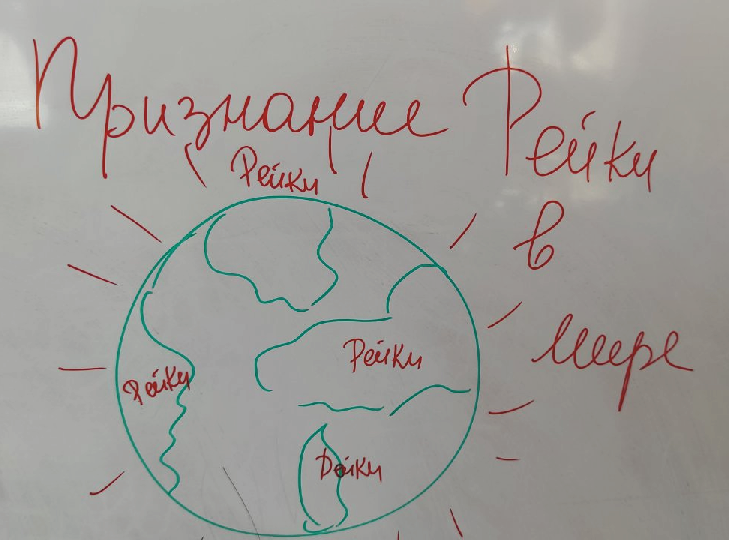 Признание Рейки
в
мире
Рейки
Рейки
Рейки
Рейки